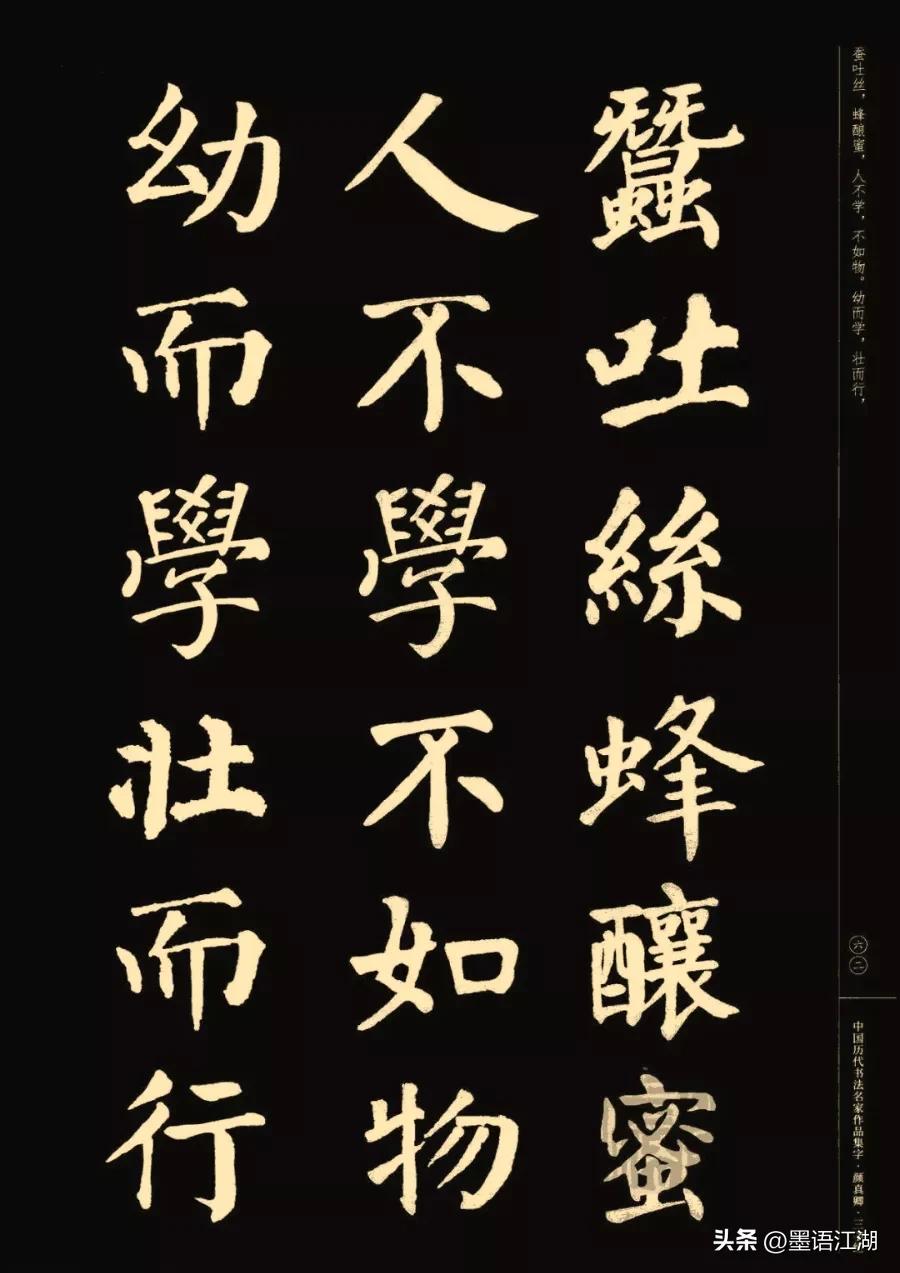 蠶吐絲蜂釀蜜
人不學不如物
幼而學壯而行
蚕吐丝，蜂酿蜜，人不学，不如物。幼而学，壮而行，
六二
中国历代书法名家作品集字·颜真卿·三
头条 @墨语江湖